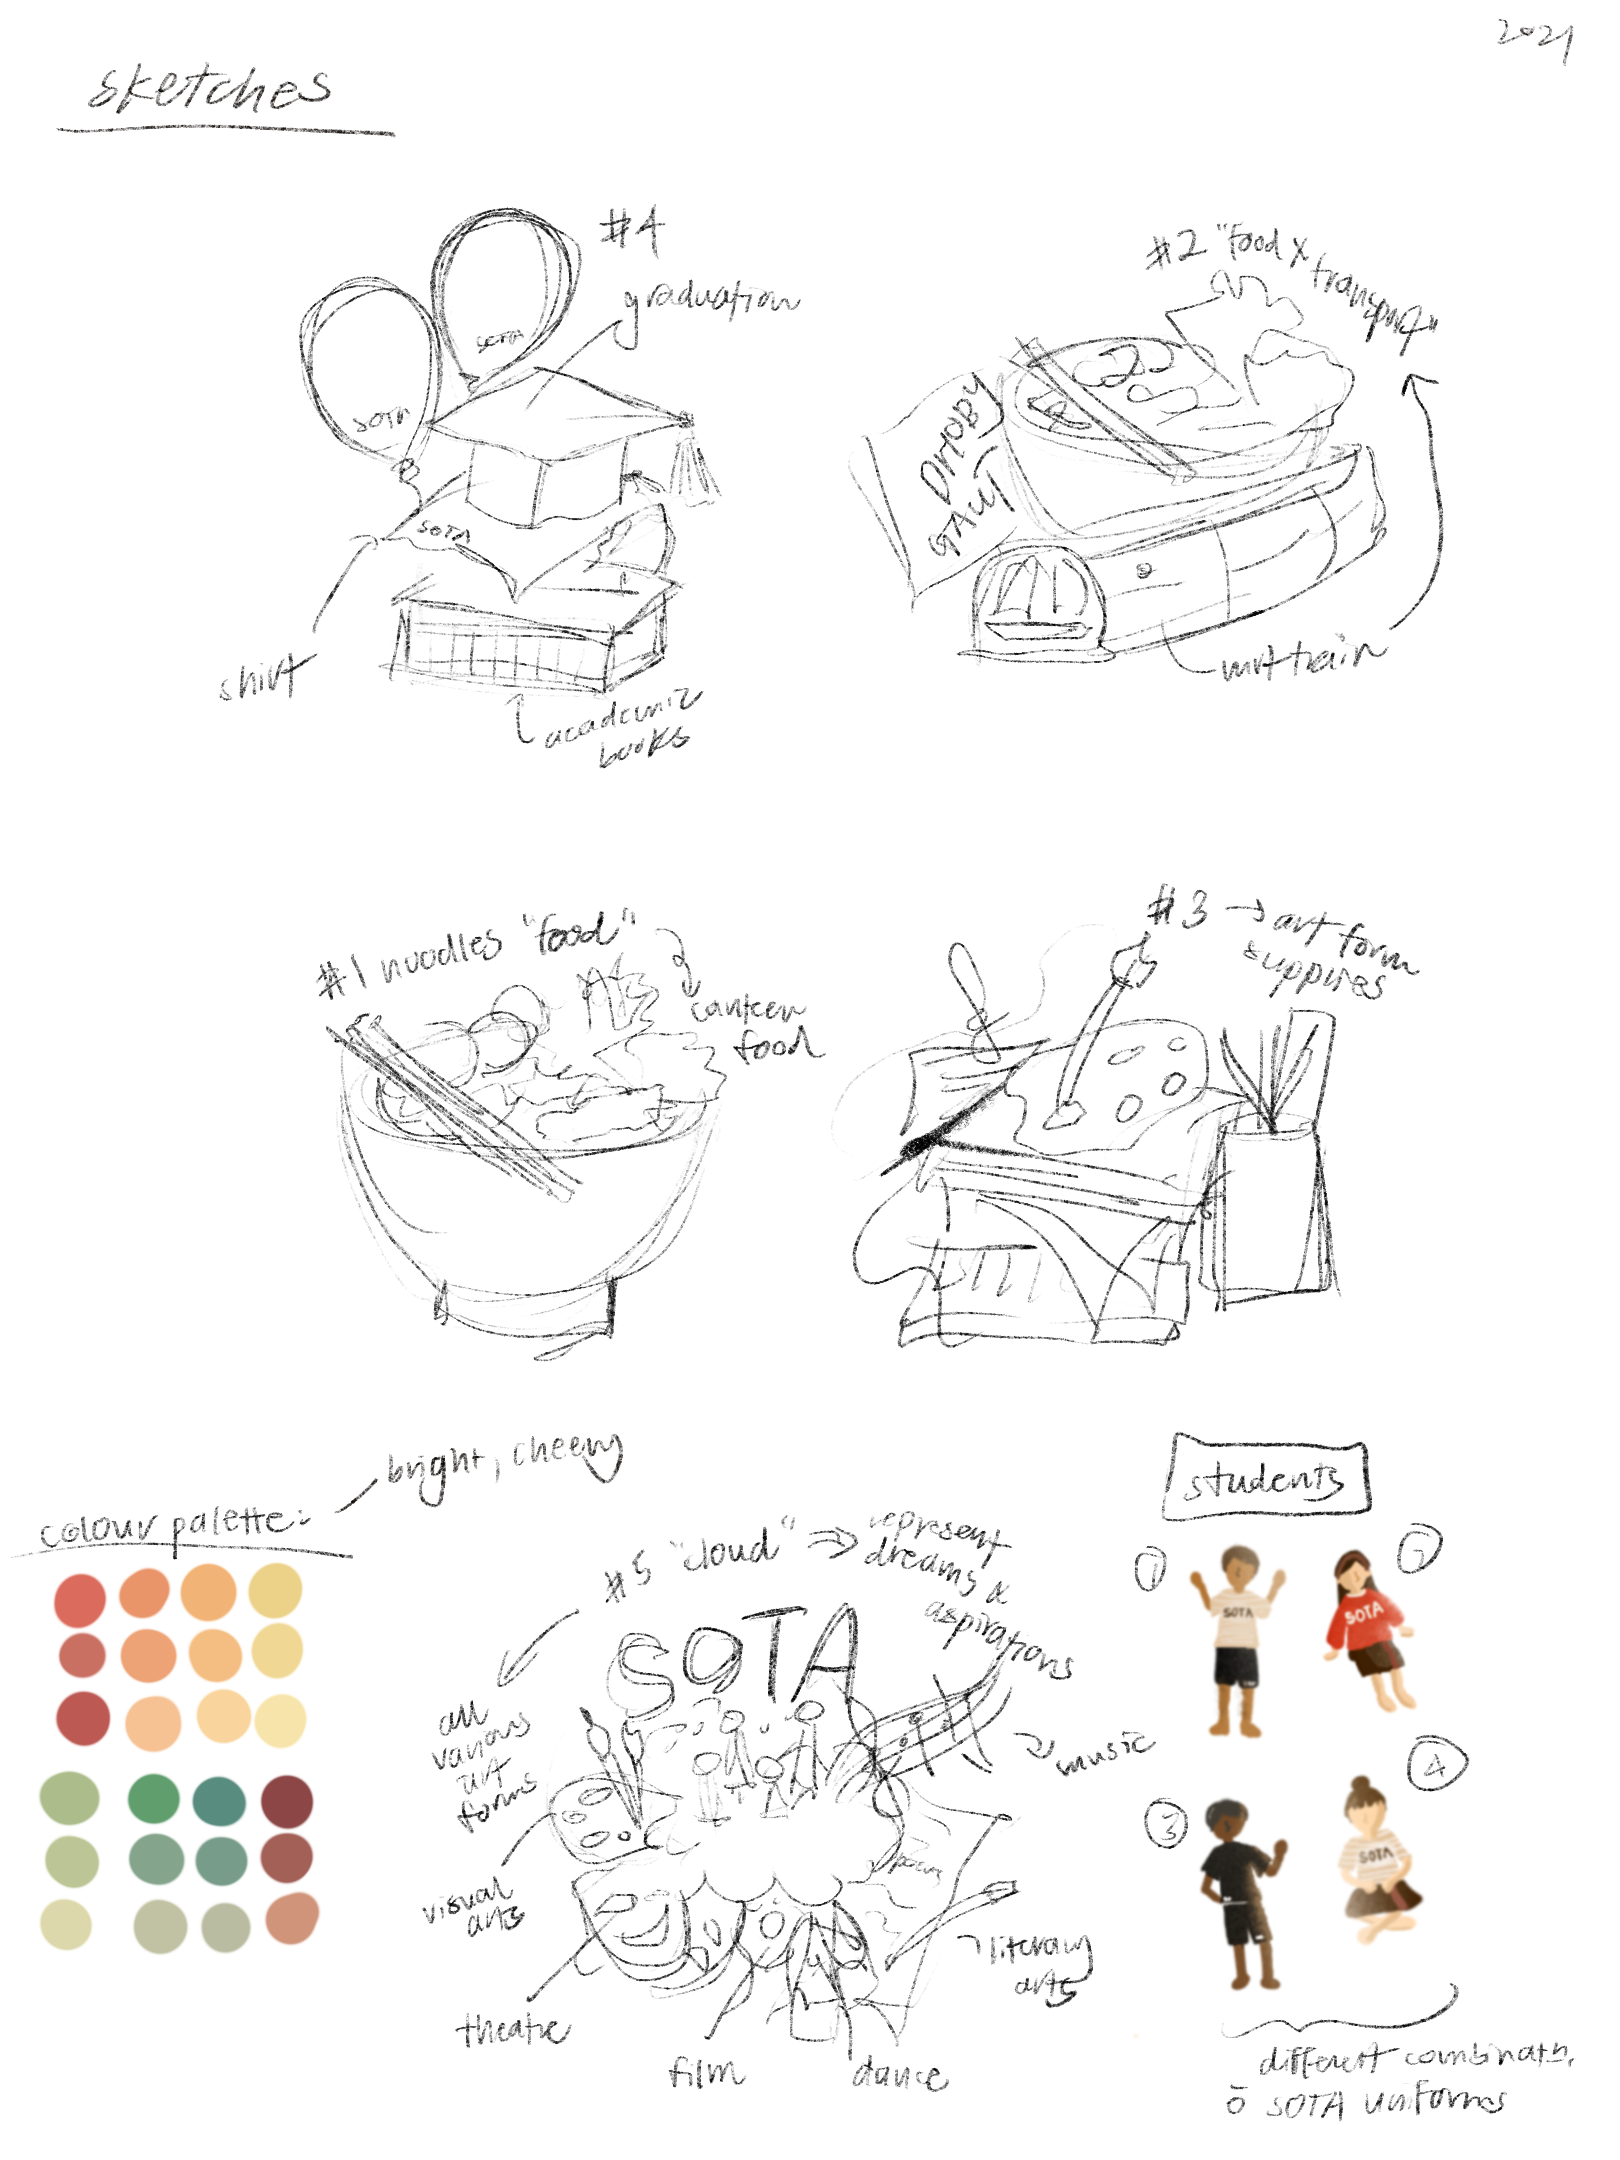 2021
sketches
#4
graduation
SOTA
SOTA
SOTA
shirt
academic
books
#2 "food x
transport"
DHOBY
GAUT
mrt train
#1 noodles "food"
canteen
food
#3 → art form
supplies
bright, cheery
colour palette:
#5 "cloud" ⇒ represent
dreams &
aspirations
SOTA
all
various
art
forms
music
visual
arts
literary
arts
theatre
film
dance
students
1
2
SOTA
SOTA
3
4
SOTA
different combinatn.
SOTA uniforms